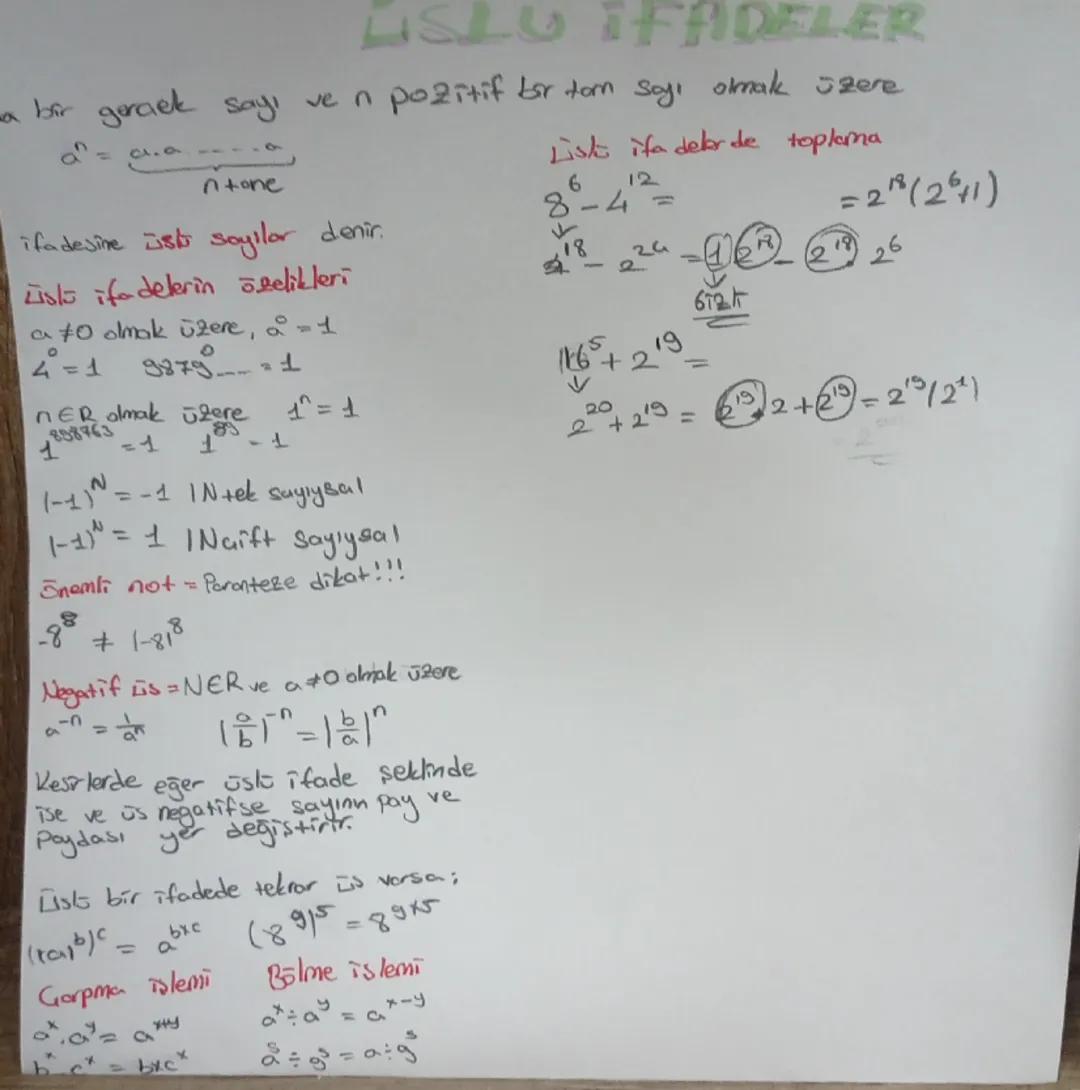 ÜSLÜ İFADELER
a bir gerçek sayı ve n pozitif bir tam sayı olmak üzere
aⁿ = a.a.....a
n tane
ifadesine üslü sayılar denir.
üslü ifadelerin özelikleri
a ≠ 0 olmak üzere, a⁰ = 1
4⁰ = 1 9879⁰.... = 1
n ∈ R olmak üzere 1ⁿ = 1
1⁸⁹⁸⁷⁶³ = 1 1⁸⁹ = 1
(-1)ᴺ = -1 (N tek sayıysa)
(-1)ᴺ = 1 (N çift sayıysa)
Önemli not = Paranteze dikat!!!
-8⁸ ≠ (-8)⁸
Negatif üs = N ∈ R ve a ≠ 0 olmak üzere
a⁻ⁿ = 1/aⁿ (a/b)⁻ⁿ = (b/a)ⁿ
Kesirlerde eğer üslü ifade şeklinde
ise ve üs negatifse sayının pay ve
Paydası yer değiştirir.
Üslü bir ifadede tekrar üs varsa;
((a)ᵇ)ᶜ = aᵇˣᶜ (8⁹)⁵ = 8⁹ˣ⁵
Çarpma işlemi Bölme işlemi
aˣ.aʸ = aˣ⁺ʸ aˣ ÷ aʸ = aˣ⁻ʸ
bˣ.cˣ = bxcˣ a⁵ ÷ g⁵ = a÷g⁵
Üslü ifadelerde toplama
8⁶ - 4¹² = = 2¹⁸(2⁶+1)
2¹⁸ - 2²⁴ = 1 2¹⁸ - 2¹⁸ 2⁶
gizli
16⁵ + 2¹⁹ =
2²⁰ + 2¹⁹ = 2¹⁹.2 + 2¹⁹ = 2¹⁹(2¹)